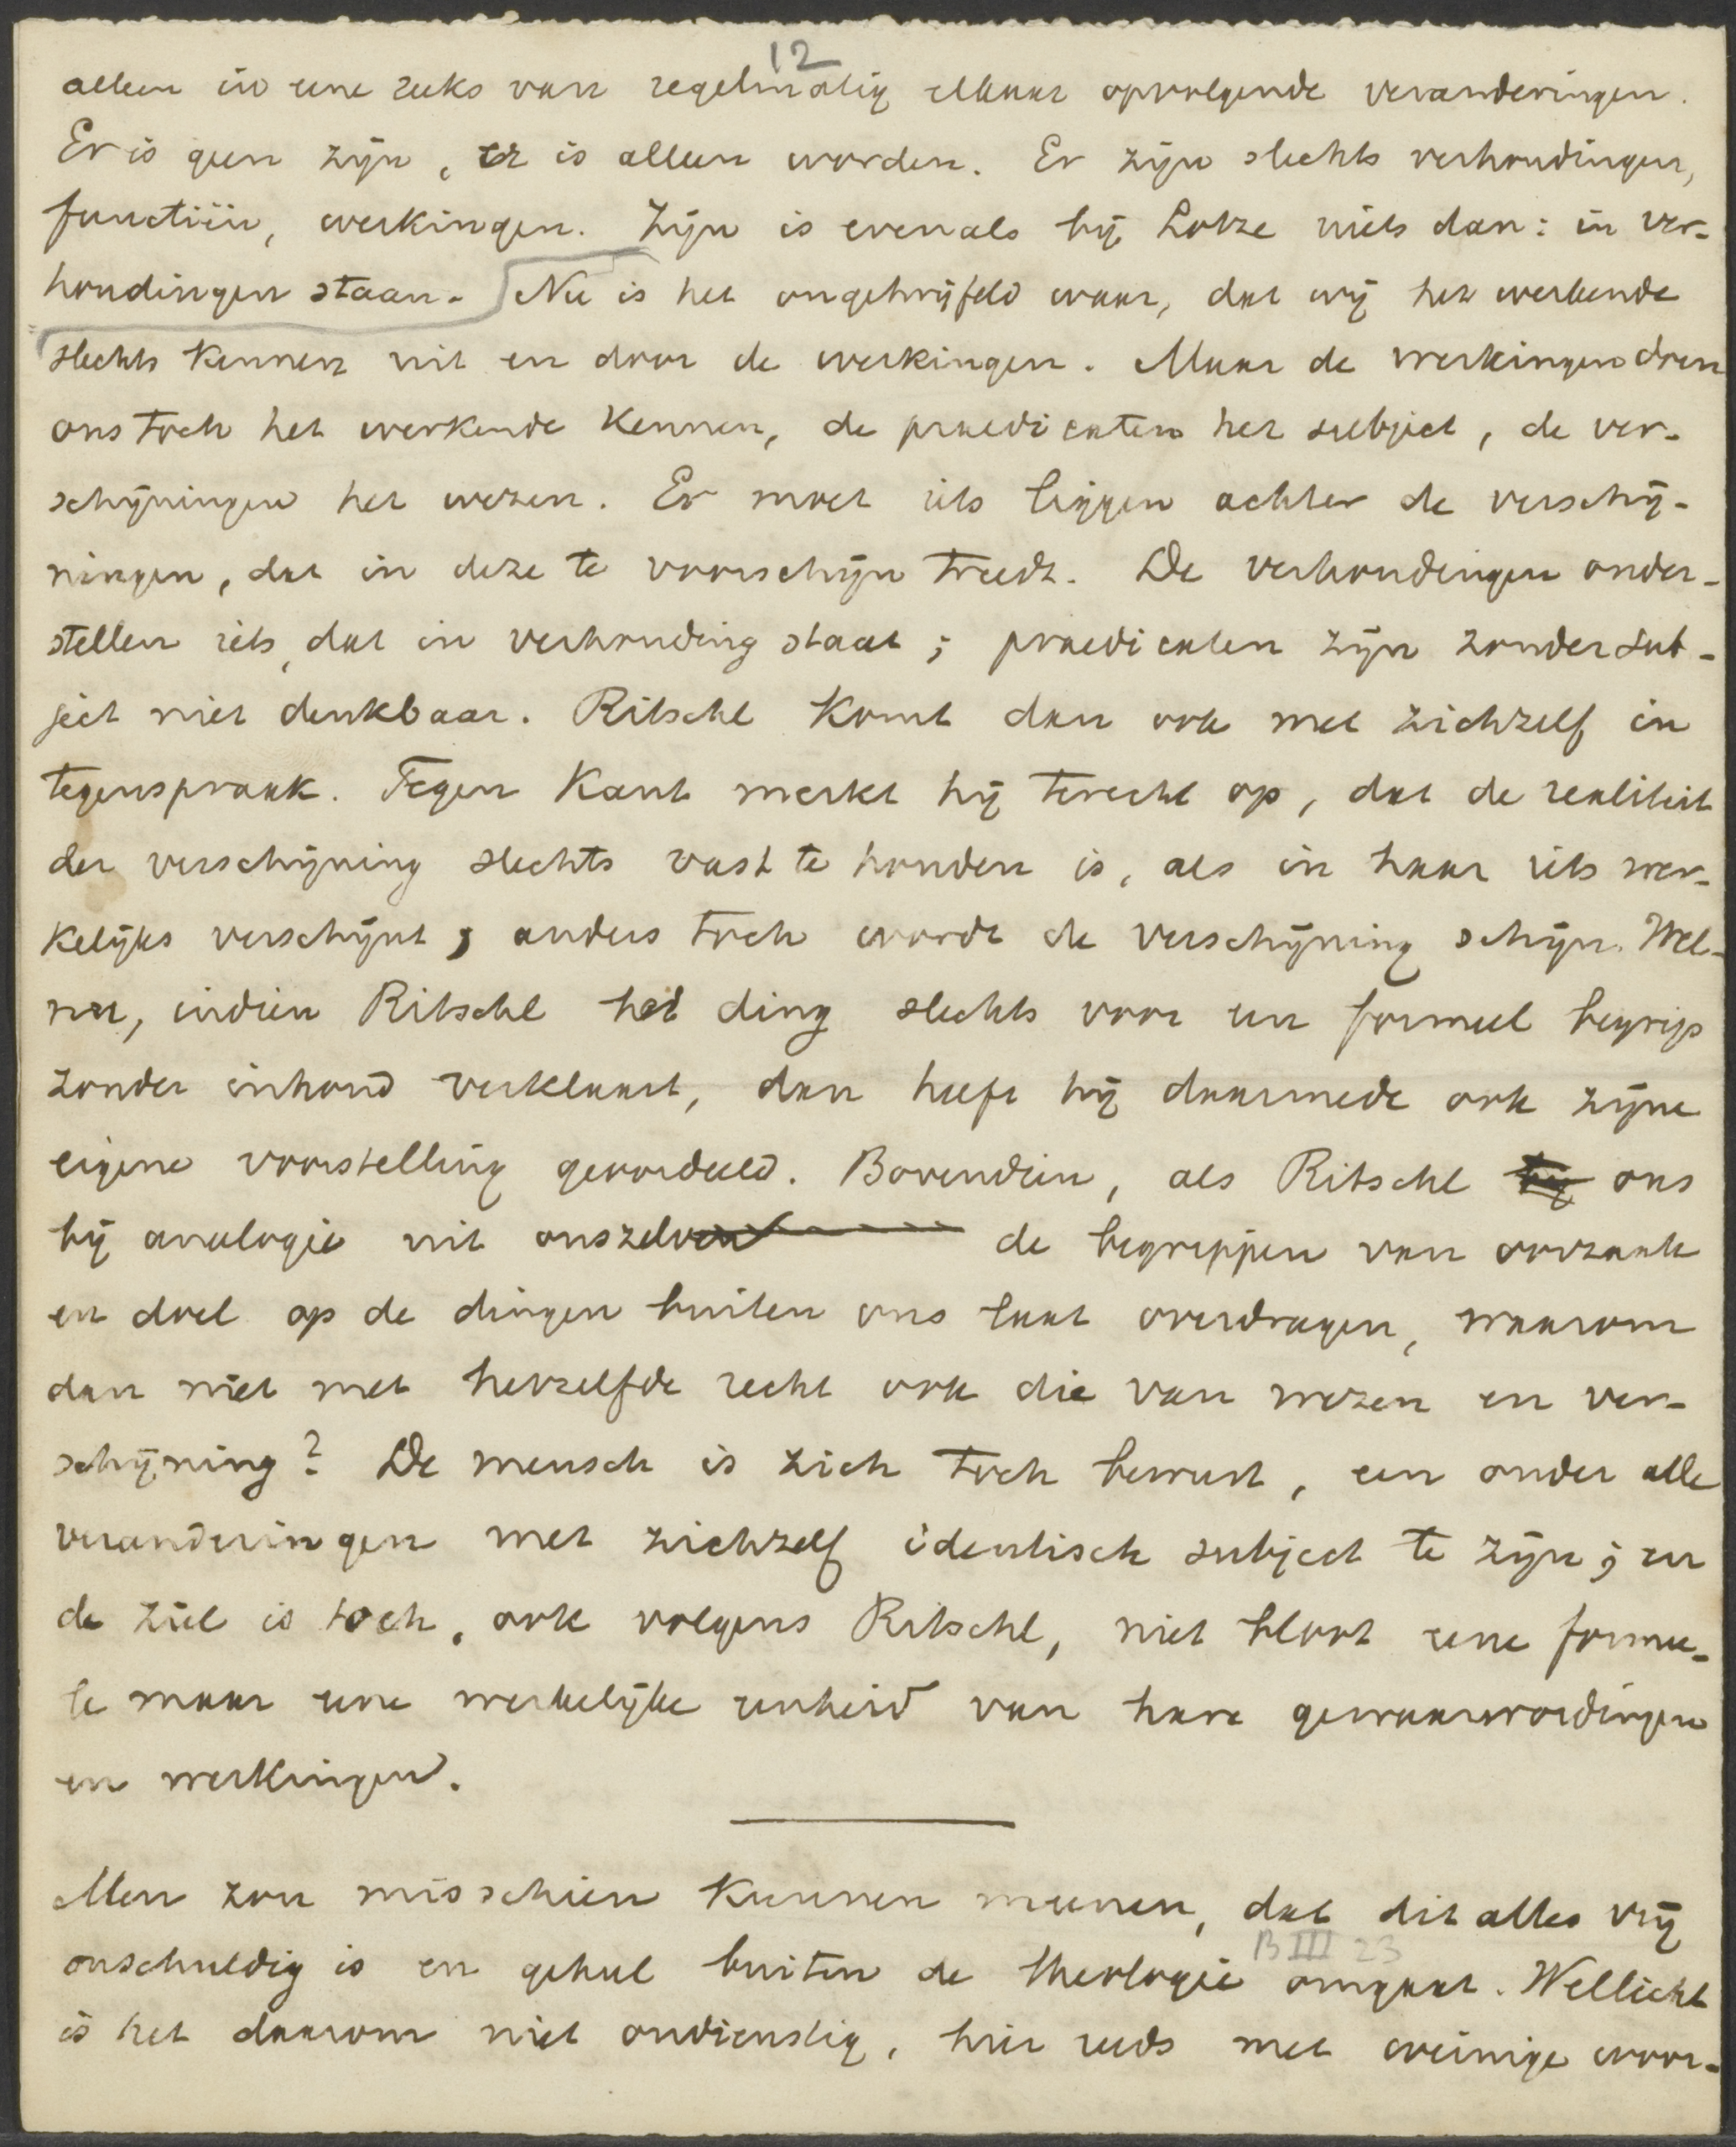 12
alleen in eene reeks van regelmatig elkaar opvolgende veranderingen.
Er is geen zijn, er is alleen worden. Er zijn slechts verhoudingen,
functiën, werkingen. Zijn is evenals bij Lotze niets dan: in ver-
houdingen staan. Nu is het ongetwijfeld waar, dat wij het werkende
slechts kennen uit en door de werkingen. Maar de werkingen doen
ons toch het werkende kennen, de praedicaten het subject, de ver-
schijningen het wezen. Er moet iets liggen achter de verschij-
ningen, dat in deze te voorschijn treedt. De verhoudingen onder-
stellen iets, dat in verhouding staat; praedicaten zijn zonder sub-
ject niet denkbaar. Ritschl komt dan ook met zichzelf in
tegenspraak. Tegen Kant merkt hij terecht op, dat de realiteit
der verschijning slechts vast te houden is, als in haar iets wer-
kelijks verschijnt; anders toch wordt de verschijning schijn. Wel-
nu, indien Ritschl het ding slechts voor een formeel begrip
zonder inhoud verklaart, dan heeft hij daarmede ook zijne
eigene voorstelling geoordeeld. Bovendien, als Ritschl bij ons
bij analogie uit onszelven de begrippen van oorzaak
en doel op de dingen buiten ons laat overdragen, waarom
dan niet met hetzelfde recht ook die van wezen en ver-
schijning? De mensch is zich toch bewust, een onder alle
veranderingen met zichzelf identisch subject te zijn; en
de ziel is toch, ook volgens Ritschl, niet bloot eene formee-
le maar eene werkelijke eenheid van hare gewaarwordingen
en werkingen.
Men zou misschien kunnen meenen, dat dit alles vrij
B III 23
onschuldig is en geheel buiten de theologie omgaat. Wellicht
is het daarom niet ondienstig, hier reeds met weinige woor-